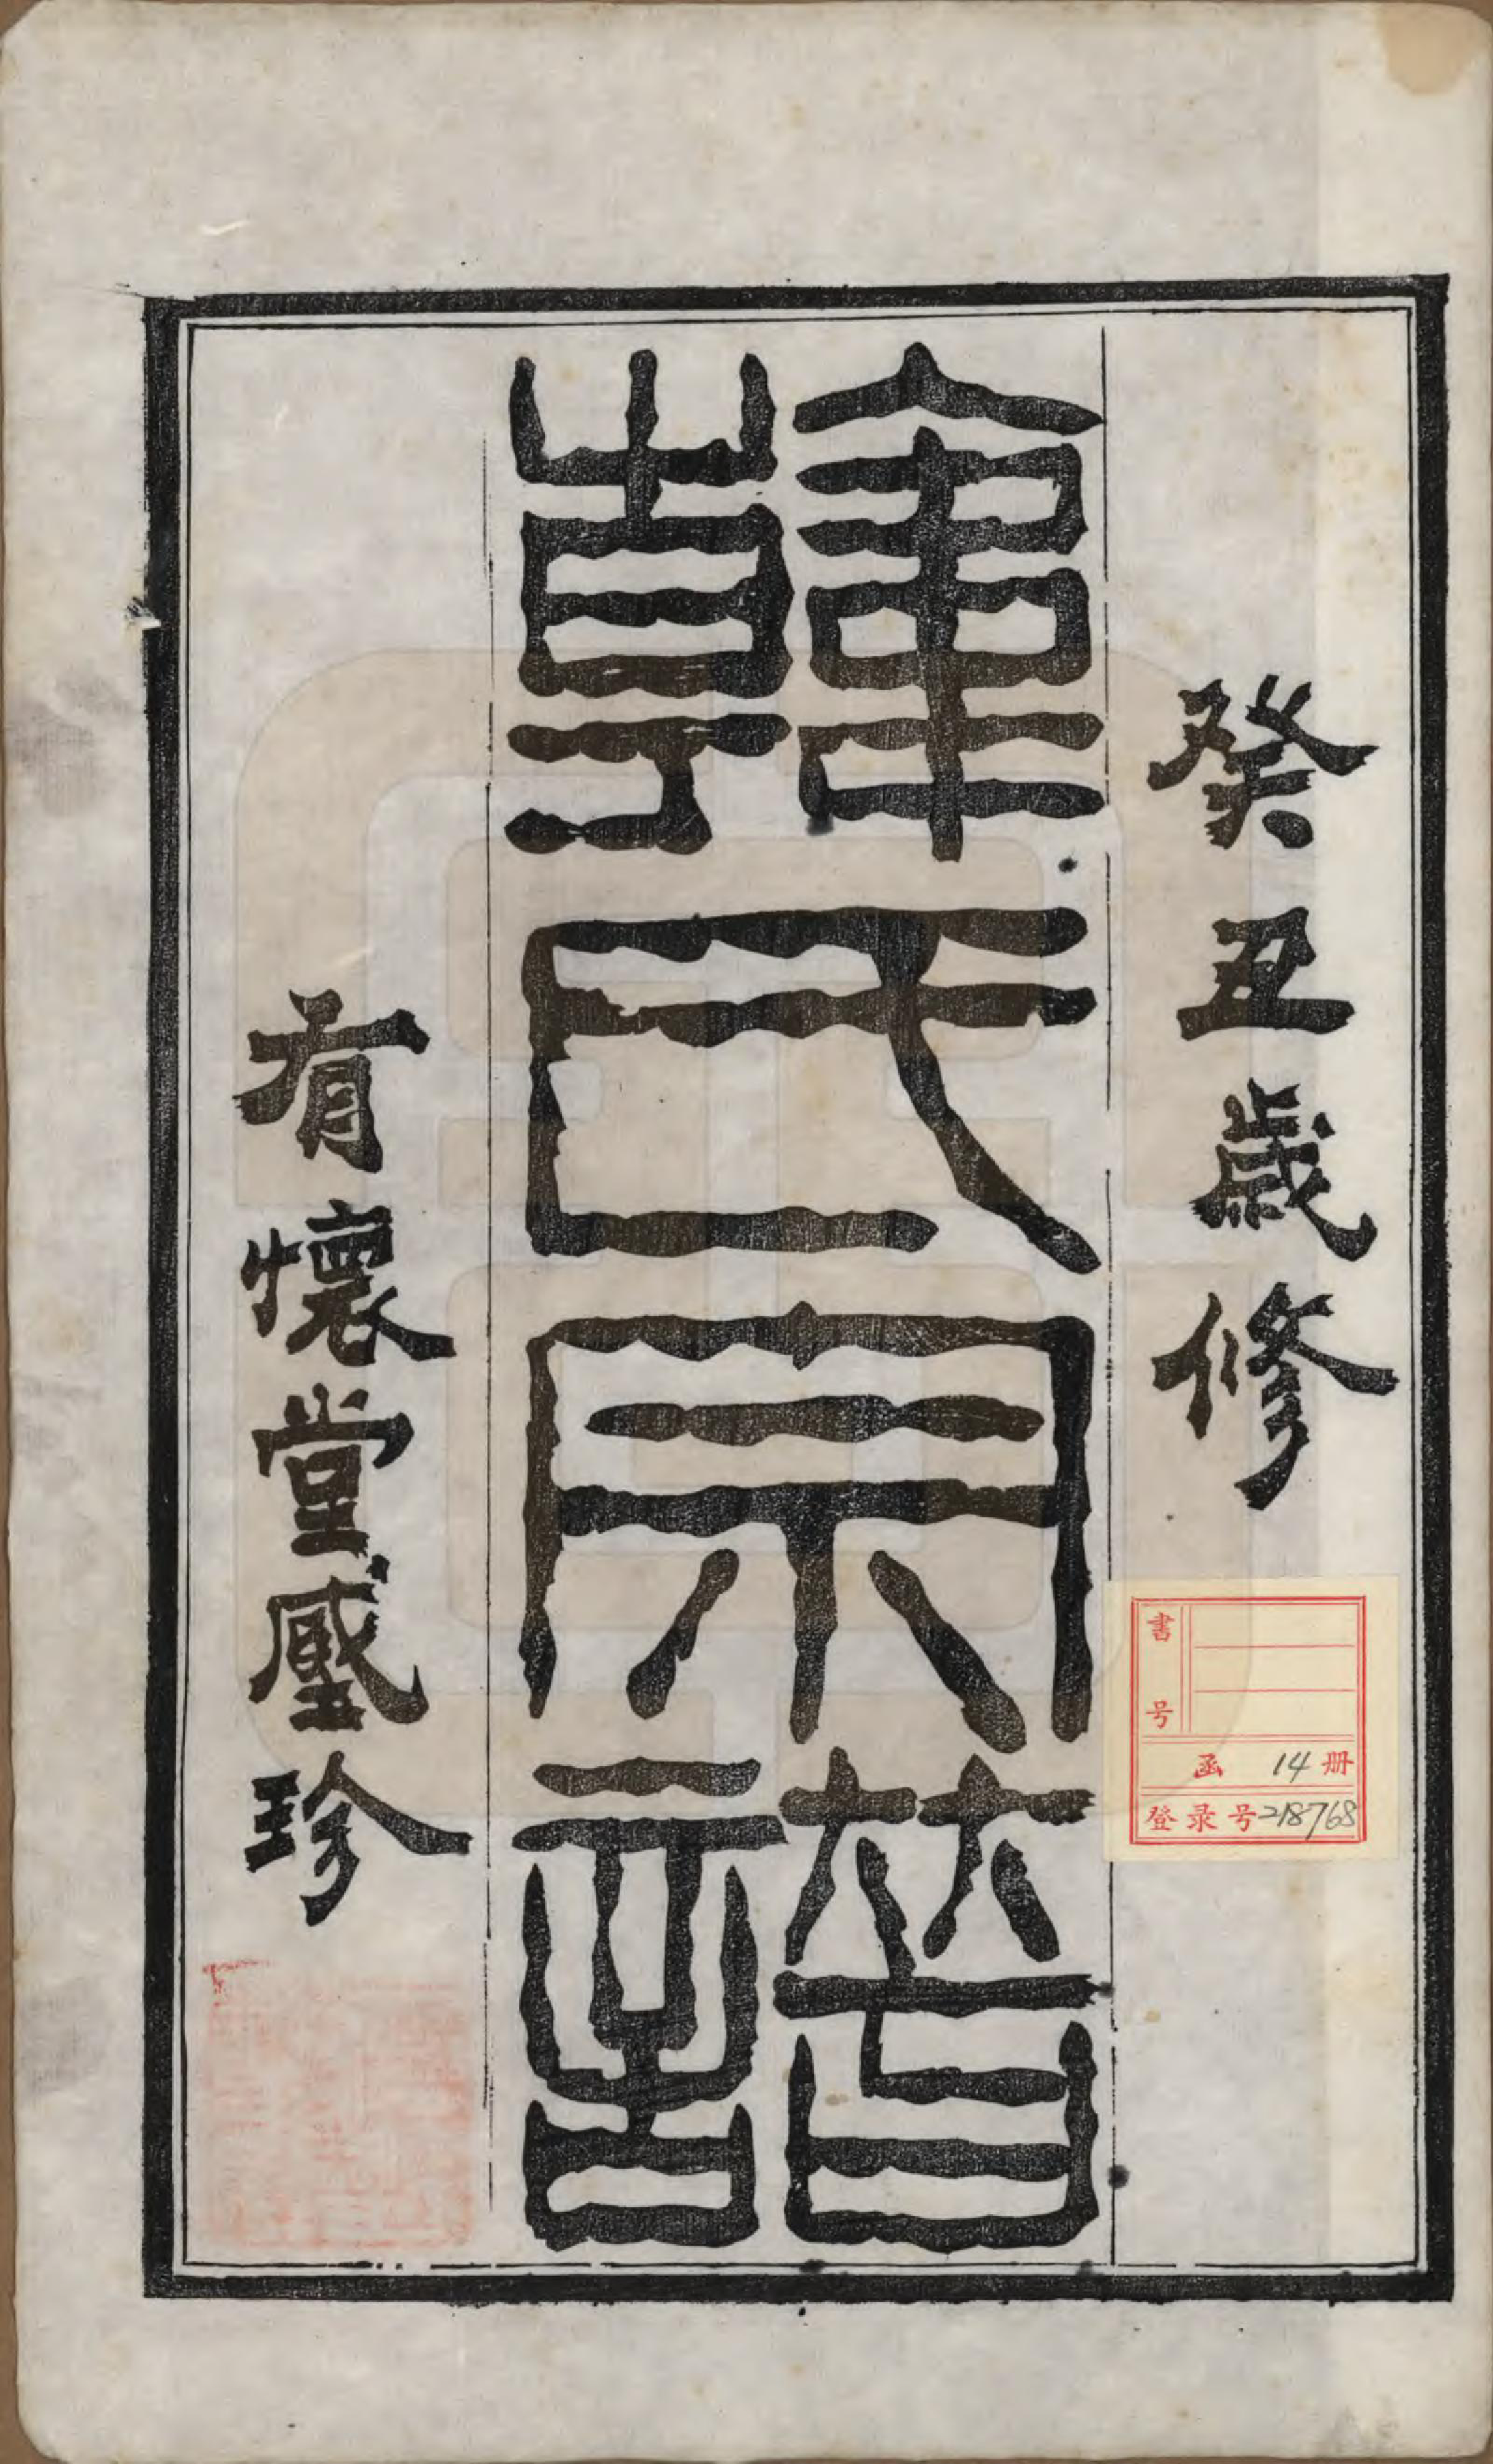 癸丑歲修
韓氏宗譜
有懷堂珍
書号
函 14 册
登录号218768